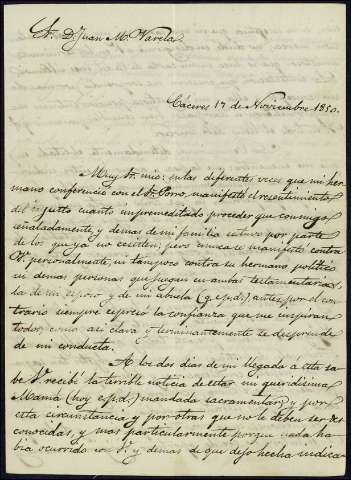 Sr. Dn. Juan M. Varela
Cáceres 17 de Noviembre 1850.
Muy Sr. mio: en las diferentes veces que mi her
mano conferenció con el Sr. Porro, manifestó el resentimiento
del injusto cuanto impremeditado proceder que conmigo
señaladamente, y demas de mi familia estuvo por parte
de los que ya no ecsisten; pero nunca se manifestó contra
V. personalmente, ni tampoco contra su hermano politico
ni demas personas que juegan en ambas testamentarias,
la de mi esposo y de mi abuela (q. e. p. d.) antes por el con
trario siempre espresó la confianza que me inspiran
todos, como asi clara y terminantemente se desprende
de mi conducta.
A los dos dias de mi llegada á esta sa
be V. recibí la terrible noticia de estar mi queridisima
Mamá (hoy e. p. d.) mandada sacramentar; y por
esta circunstancia y por otras que no le deben ser des
conocidas, y mas particularmente porque nada ha
bia ocurrido con V. y demas de que dejo hecha indica